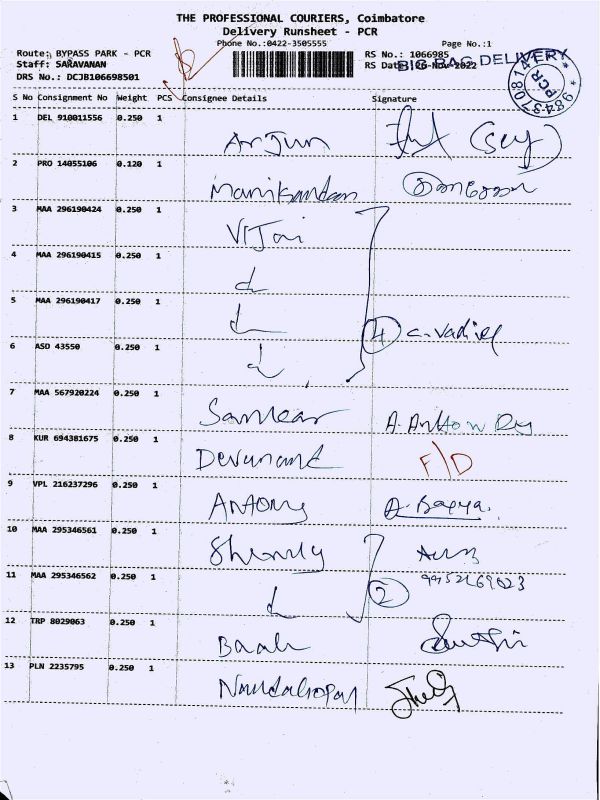 THE PROFESSIONAL COURIERS, Coimbatore
Delivery Runsheet - PCR
Phone No.:0422-3505555 Page No.:1
Route: BYPASS PARK - PCR RS No.: 1066985
Staff: SARAVANAN RS Dat 26-Nov-2022
BIG BAG DELIVERY
DRS No.: DCJB106698501
PCR
S No Consignment No Weight PCS Consignee Details Signature
1 DEL 910011556 0.250 1 Arjun
2 PRO 14055106 0.120 1 Manikandan
3 MAA 296190424 0.250 1 Vijai
4 MAA 296190415 0.250 1
5 MAA 296190417 0.250 1
4 C. Vadivel
6 ASD 43550 0.250 1
7 MAA 567920224 0.250 1 Sankar
8 KUR 694381675 0.250 1 Devanand F/D
9 VPL 216237296 0.250 1 Antony
10 MAA 295346561 0.250 1
11 MAA 295346562 0.250 1 2
12 TRP 8029063 0.250 1
13 PLN 2235795 0.250 1 Nandagopal